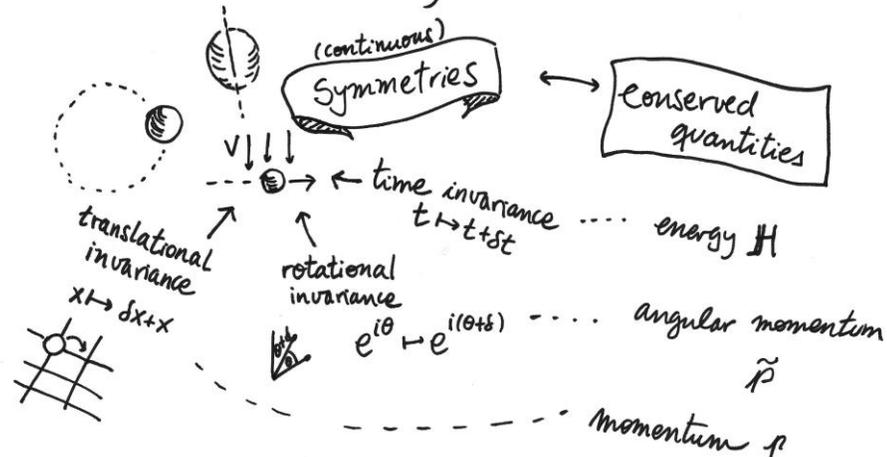 (continuous)
Symmetries
conserved
quantities
V
time invariance
t ↦ t+δt
energy ℍ
translational
invariance
x ↦ δx+x
rotational
invariance
θ+δ
θ
e^{iθ} ↦ e^{i(θ+δ)}
angular momentum
p̃
momentum p